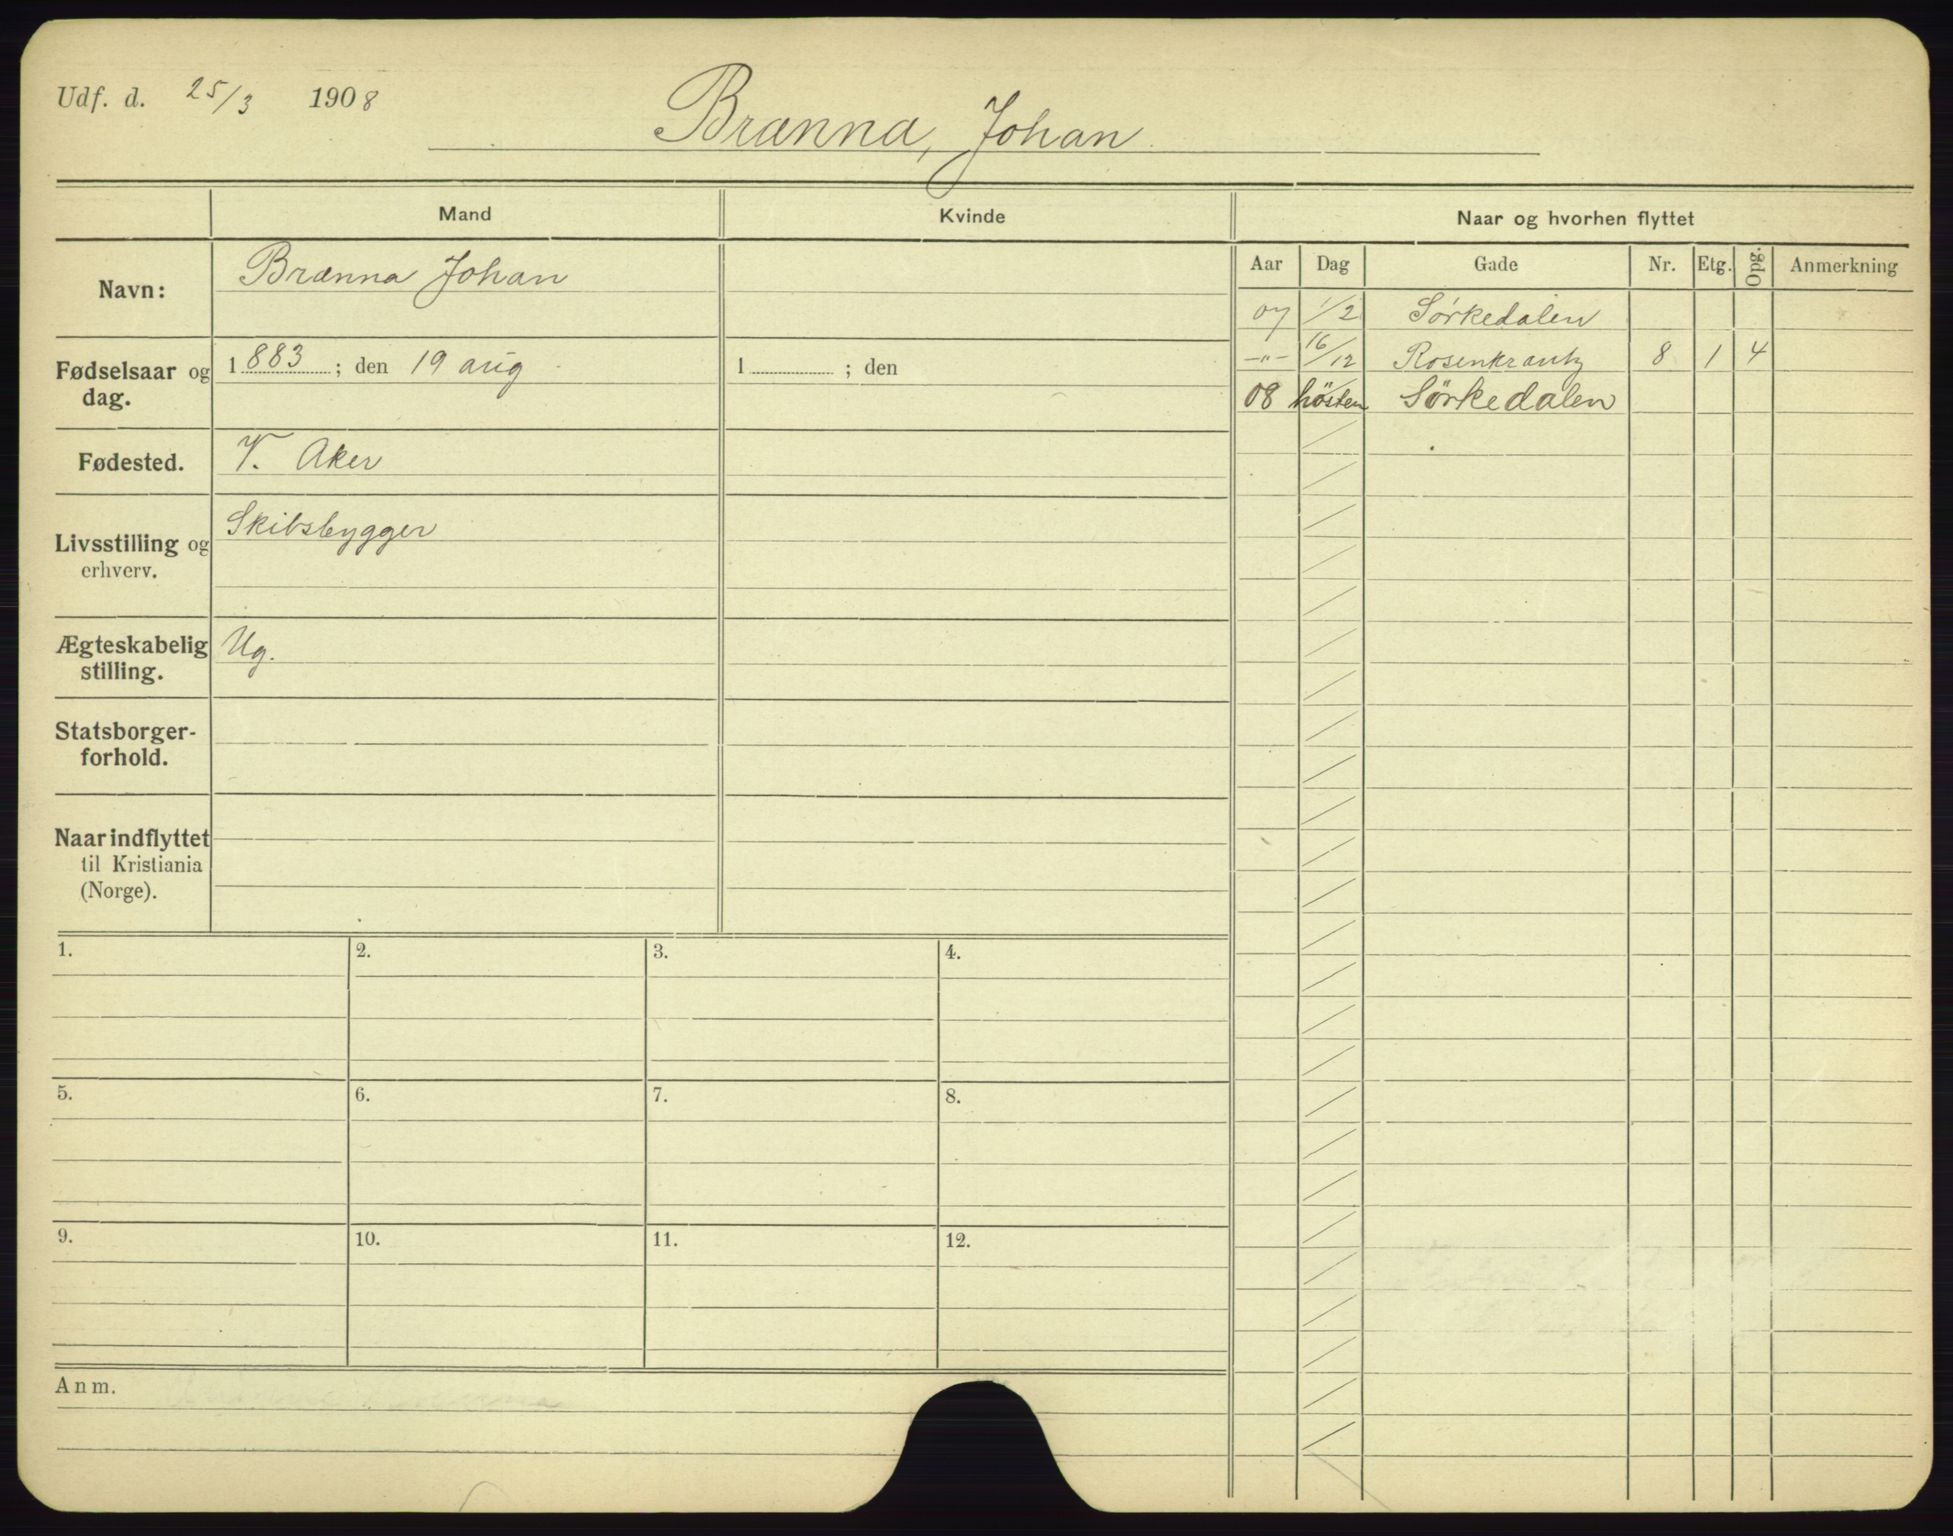 Udf. d. 25/3 1908
Brænna, Johan
Mand Kvinde Naar og hvorhen flyttet
Aar Dag Gade Nr. Etg. Opg. Anmerkning
Navn: Brænna Johan
07 1/2 Sörkedalen
-"- 16/12 Rosenkrantz 8 1 4
08 hösten Sörkedalen
Fødselsaar og 1883 ; den 19 aug 1 ; den
dag.
Fødested. V. Aker
Livsstilling og Skibsbygger
erhverv.
Ægteskabelig Ug.
stilling.
Statsborger-
forhold.
Naar indflyttet
til Kristiania
(Norge).
1. 2. 3. 4.
5. 6. 7. 8.
9. 10. 11. 12.
Anm.